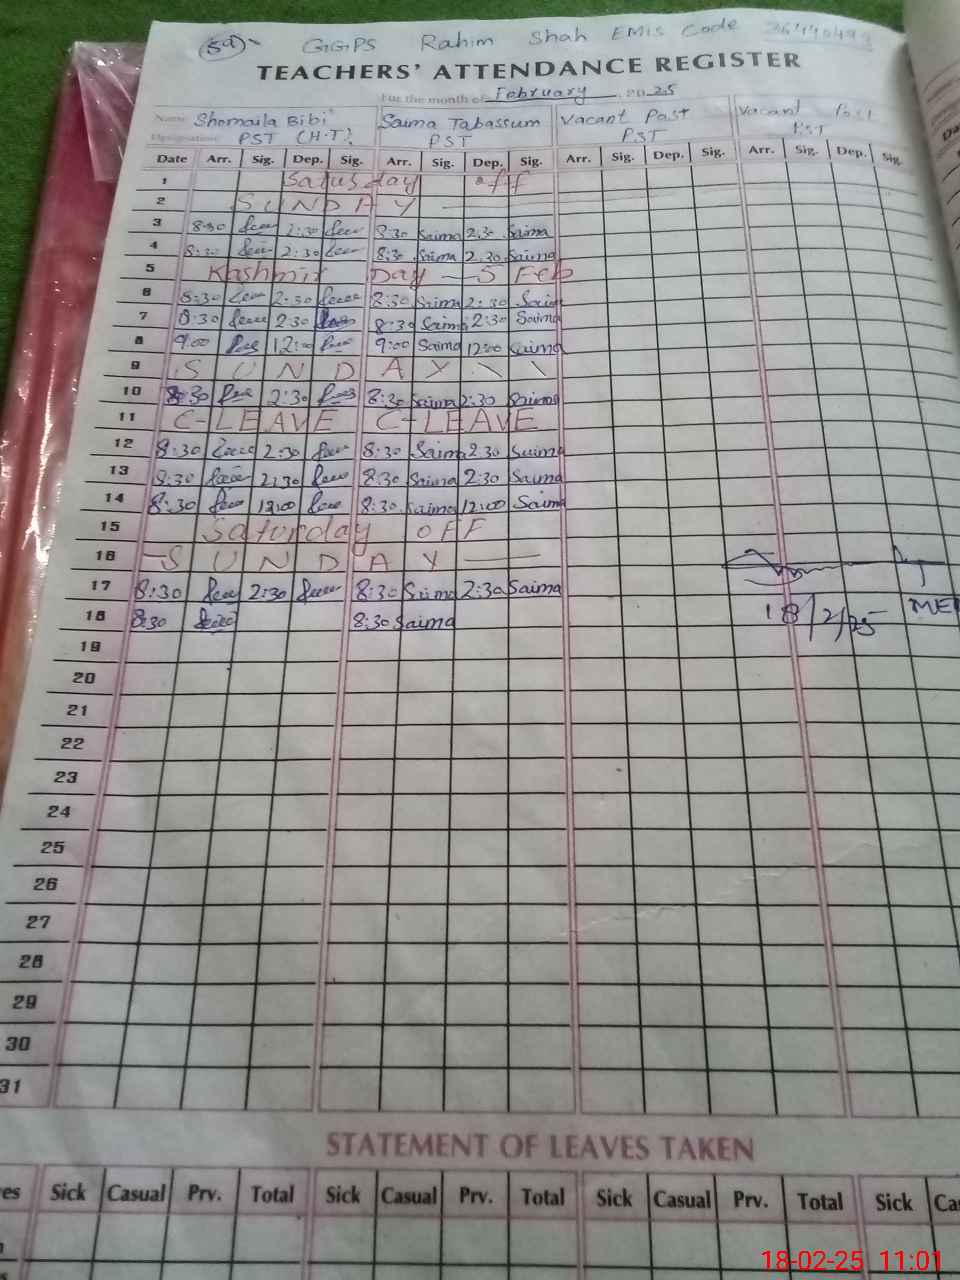 GGPS Rahim Shah EMIS Code
TEACHERS' ATTENDANCE REGISTER
For the month of February 2025
Name Shomaila Bibi Saima Tabassum Vacant Post Vacant Post
Designation PST (H.T) PST PST PST
Date Arr. Sig. Dep. Sig. Arr. Sig. Dep. Sig. Arr. Sig. Dep. Sig. Arr. Sig. Dep. Sig.
1 Saturday off
2 SUNDAY
3 8:30 2:30 8:30 Saima 2:30 Saima
4 8:30 2:30 8:30 Saima 2:30 Saima
5 Kashmir Day - 5 Feb
6 8:30 2:30 8:30 Saima 2:30 Saima
7 8:30 2:30 8:30 Saima 2:30 Saima
8 9:00 12:00 9:00 Saima 12:00 Saima
9 SUNDAY
10 8:30 2:30 8:30 Saima 2:30 Saima
11 C-LEAVE C-LEAVE
12 8:30 2:30 8:30 Saima 2:30 Saima
13 8:30 2:30 8:30 Saima 2:30 Saima
14 8:30 12:00 8:30 Saima 12:00 Saima
15 Saturday OFF
16 - SUNDAY -
17 8:30 2:30 8:30 Saima 2:30 Saima
18 8:30 8:30 Saima
18/2/25
19
20
21
22
23
24
25
26
27
28
29
30
31
STATEMENT OF LEAVES TAKEN
Sick Casual Prv. Total Sick Casual Prv. Total Sick Casual Prv. Total Sick
18-02-25 11:01